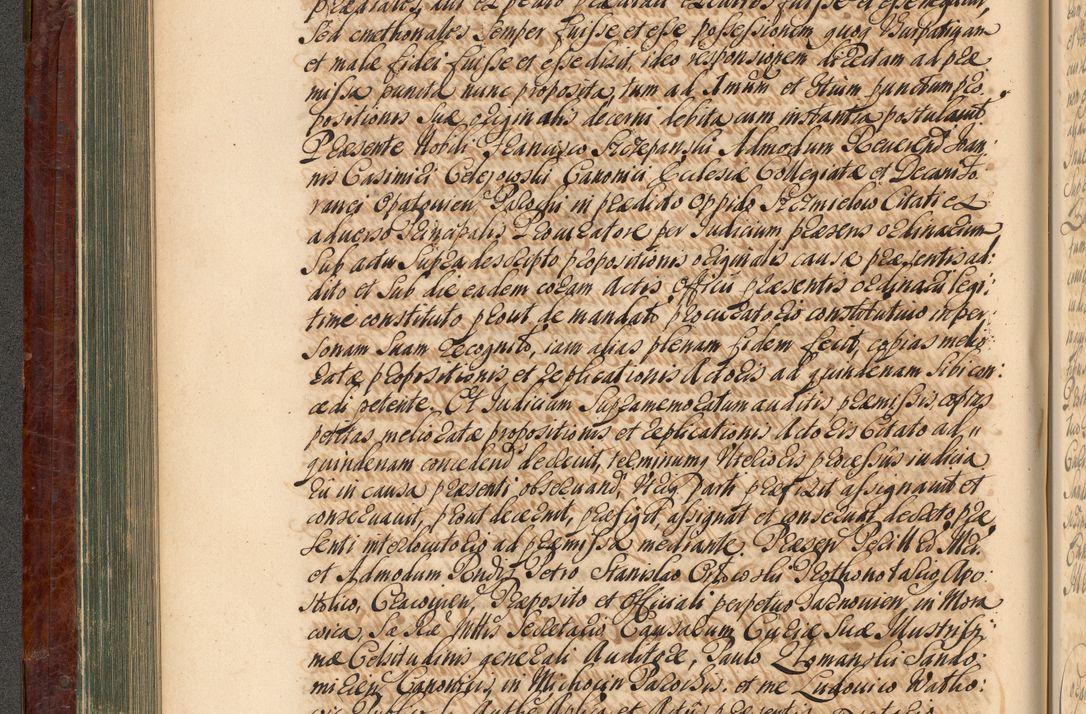 sed emethonalis semper fuisse et esse possessionem quoq Usurpativam
et malæ fidei fuisse et esse dixit, ideo responsionem directam ad præ
missa puncta nunc proposita, tum ad 1mum et 3tium punctum pro,
positionis suæ originalis decerni debita cum instantia postulavit
Præsente Nobili Francisco Szczepanski Admodum Reverend Joan,
nis Casimiri Celerowski Canonici Ecclesiæ Collegiatæ et Decani Fo
ranei Opatovien Parochi in prædicto Oppido Szcmielow Citati ex
adverso Principalis Procuratore per Judicium præsens ordinarium
sub actu supra descripto propositionis originalis causæ præsentis ad:
dito et sub die eadem coram Actis Officii præsentis ordinarii legi,
time constituto prout de mandato procuratorio constitutivo in per,
sonam suam recognito, iam alias plenam fidem fecit, copias melio
ratæ propositionis et replicationis Actoris ad quindenam sibi con:
cædi petente. Et Judicium supramemoratum auditis præmissis copias
petitas melioratæ propositionis et replicationis Actoris Citato ad "
quindenam concedend decrevit, terminumq Ulterioris processus iudicia
rii in causa præsenti observand, utriq parti præfixit assignavit et
conservavit, prout decernit, præfigit, assignat et conservat decreto præ
senti interlocutorio ad præmissa mediante. Præsen Perill
et Admodum Rndis Petro Stanislao Prothonotario Apo:
stolico, Cracovien, Præposito et Officiali perpetuo Tarnovien, in Mora
vica, Secretario Causarum Curiæ Suæ Illustrissi,
mæ Celsitudinis generali Auditore, Paulo Sando:
mirien Canonicis, in Michocin Parochis. et me Ludovico Watho: